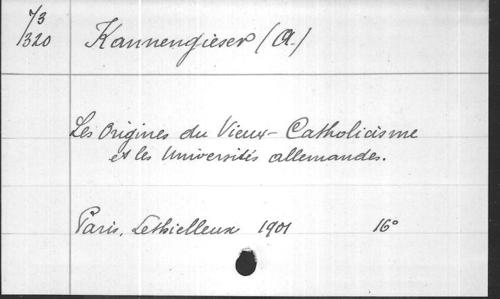 73
1320 Kannengieser (A.)
Les Origines du Vieux-Catholicisme
et les Universités allemandes.
Paris, Lethielleux 1901 16°